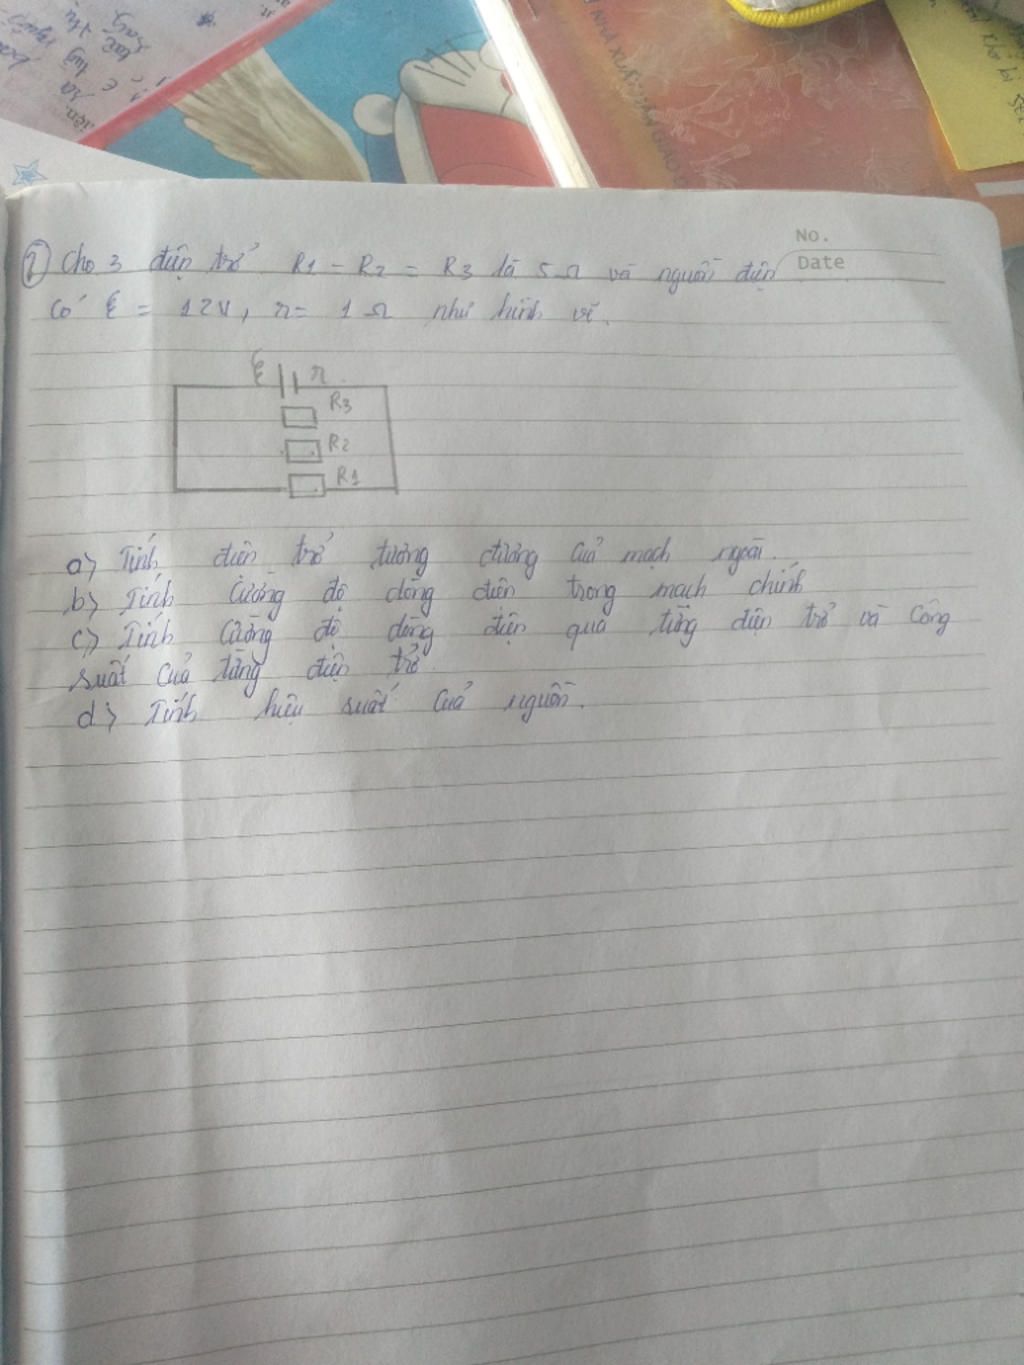 No.
Date
① Cho 3 điện trở R1 = R2 = R3 là 5Ω và nguồn điện
có ξ = 12V, r = 1Ω như hình vẽ.
ξ r
R3
R2
R1
a) Tính điện trở tương đương của mạch ngoài.
b) Tính cường độ dòng điện trong mạch chính
c) Tính cường độ dòng điện qua từng điện trở và công
suất của từng điện trở.
d) Tính hiệu suất của nguồn.